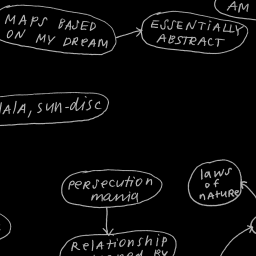 AM
MAPS BASED
ON MY DREAM
ESSENTIALLY
ABSTRACT
sun-disc
PERSECUTION
mania
laws
of
nature
RELATIONSHIP
BY